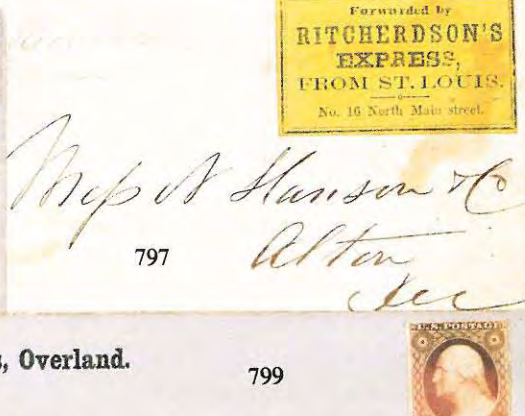 Forwarded by
RITCHERDSON'S
EXPRESS,
FROM ST. LOUIS.
No. 16 North Main street.
Mess N Hanson & Co
797
Alton
Ill
s, Overland.
799
U.S. POSTAGE